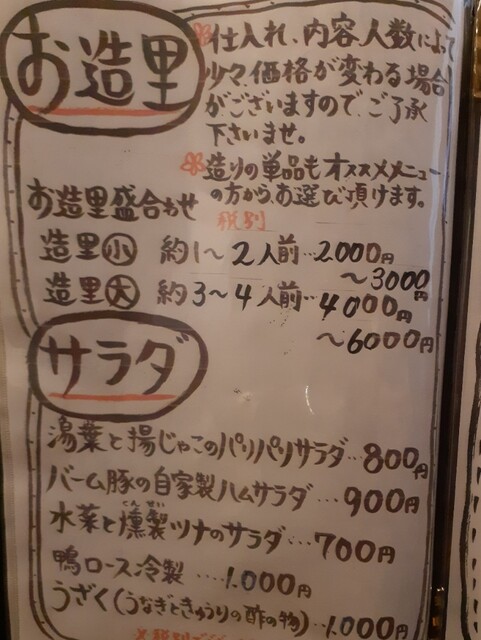 お造里
※仕入れ、内容、人数によって
少々、価格が変わる場合
がございますので、ご了承
下さいませ。
※造りの単品もオススメメニュー
の方から、お選び頂けます。
お造里盛合わせ
税別
造里小 約1〜2人前…2000円
〜3000円
造里大 約3〜4人前…4000円
〜6000円
サラダ
湯葉と揚じゃこのパリパリサラダ…800円
バーム豚の自家製ハムサラダ…900円
水菜と燻製ツナのサラダ…700円
くんせい
鴨ロース冷製……1.000円
うざく(うなぎときゅうりの酢の物)…1.000円
税別